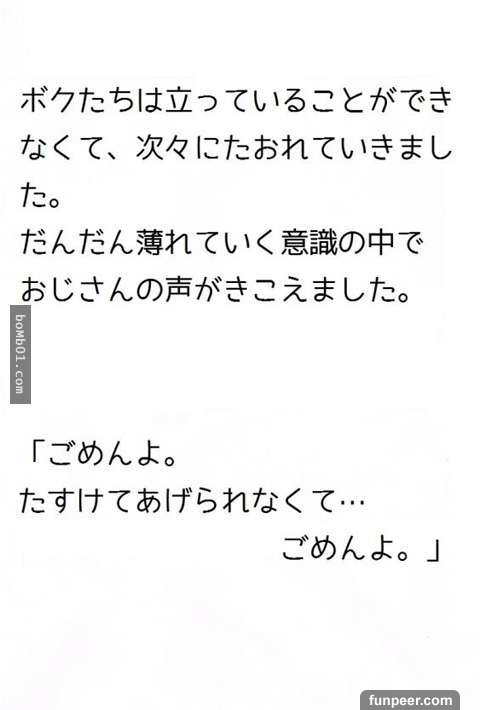 ボクたちは立っていることができ
なくて、次々にたおれていきまし
た。
だんだん薄れていく意識の中で
おじさんの声がきこえました。
boMb01.com
「ごめんよ。
たすけてあげられなくて…
ごめんよ。」
funpeer.com